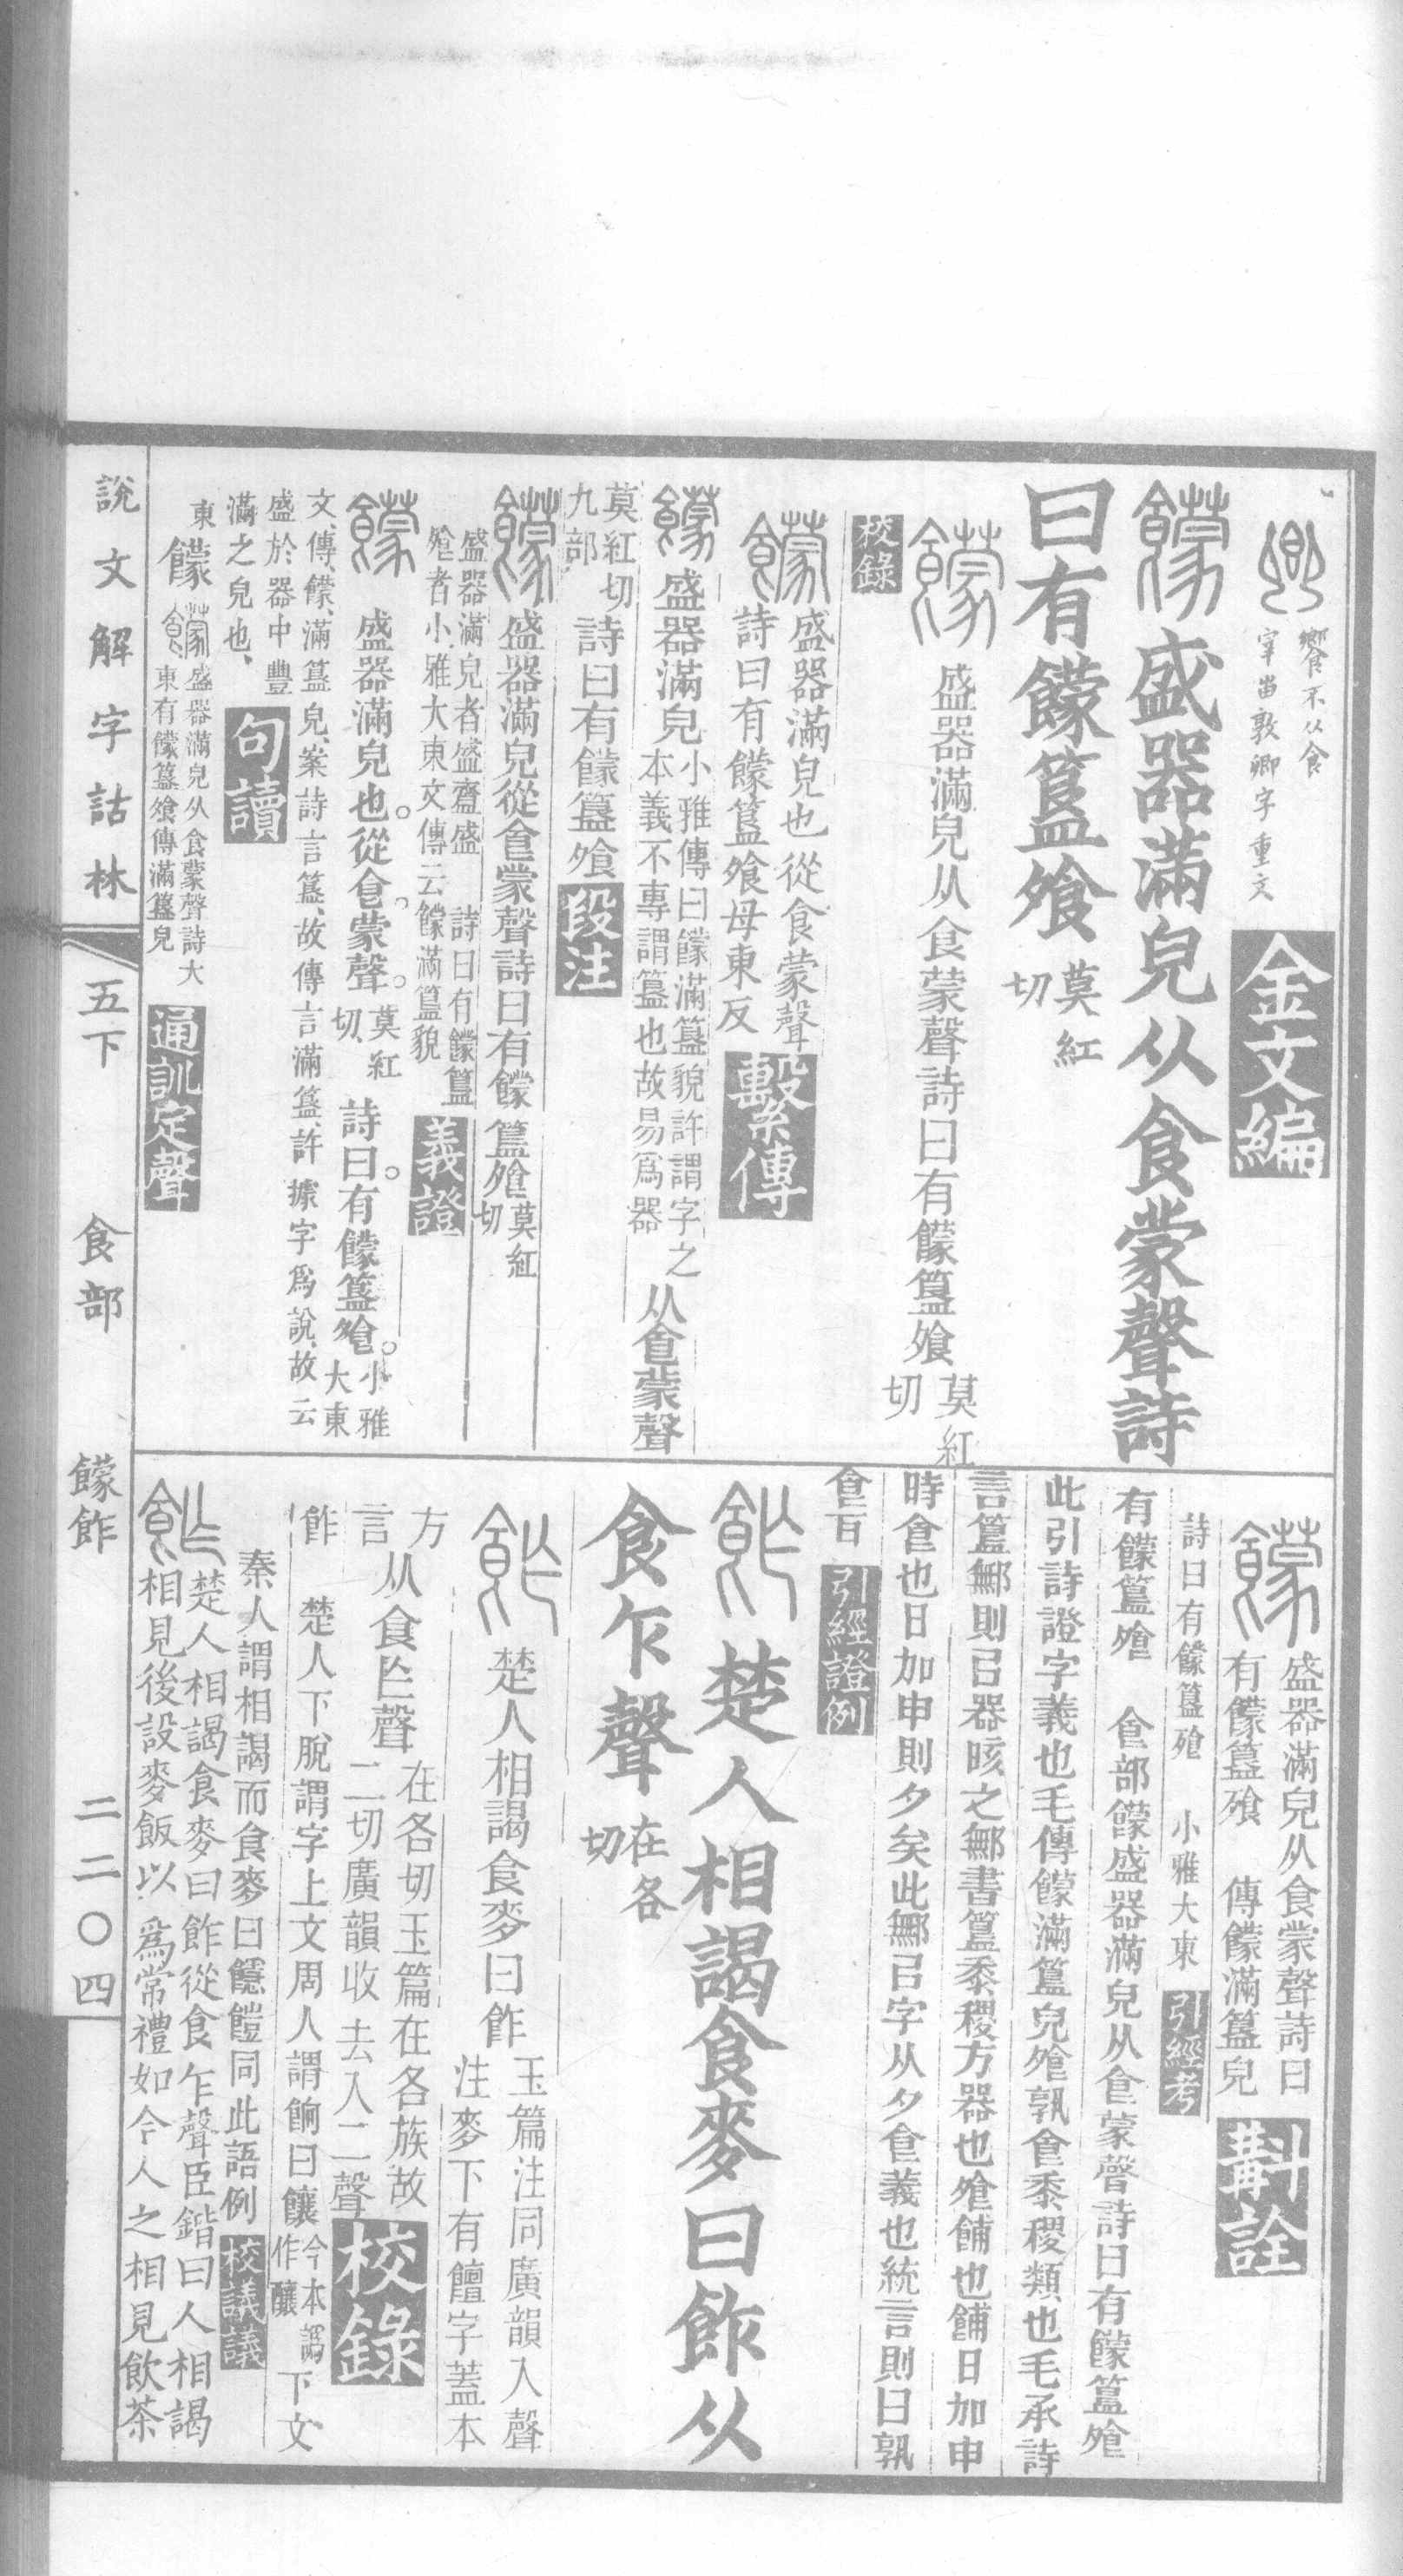 饗不从食
宰甾敦卿字重文
金文編
盛器滿皃从食蒙聲詩
曰有饛簋飧
莫紅
切
盛器滿皃从食蒙聲詩曰有饛簋飧
莫紅
切
校錄
盛器滿皃也從食蒙聲
詩曰有饛簋飧母東反
繫傳
盛器滿皃
小雅傳曰饛滿簋貌許謂字之
本義不專謂簋也故易爲器
从食蒙聲
莫紅切
九部
詩曰有饛簋飧
段注
盛器滿皃從食蒙聲詩曰有饛簋飧
莫紅
切
盛器滿皃者盛齍盛 詩曰有饛簋
飧者小雅大東文傳云饛滿簋貌
義證
盛器滿皃也。從食。蒙聲。
莫紅
切、
詩曰。有饛簋飧。
小雅
大東
文、傳、饛、滿簋皃、案詩言簋、故傳言滿簋、許據字爲說、故云
盛於器中豐
滿之皃也、
句讀
東
饛
盛器滿皃从食蒙聲詩大
東有饛簋飧傳滿簋皃
通訓定聲
盛器滿皃从食蒙聲詩曰
有饛簋飧 傳饛滿簋皃
斠詮
詩曰有饛簋飧 小雅大東
引經考
有饛簋飧 食部饛盛器滿皃从食蒙聲詩曰有饛簋飧
此引詩證字義也毛傳饛滿簋皃飧孰食黍稷類也毛承詩
言簋鄦則曰器晐之鄦書簋黍稷方器也飧餔也餔日加申
時食也日加申則夕矣此鄦曰字从夕食義也統言則曰孰
食百
引經證例
楚人相謁食麥曰飵从
食乍聲
在各
切
楚人相謁食麥曰飵
玉篇注同廣韻入聲
注麥下有饘字蓋本
方
言
从食乍聲
在各切玉篇在各族故
二切廣韻收去入二聲
校錄
飵
楚人下脫謂字上文周人謂餉曰饟
今本譌
作釀
下文
秦人謂相謁而食麥曰䭡䭓同此語例
校議議
楚人相謁食麥曰飵從食乍聲臣鍇曰人相謁
相見後設麥飯以爲常禮如今人之相見飲茶
說文解字詁林
五下
食部
饛飵
二二〇四